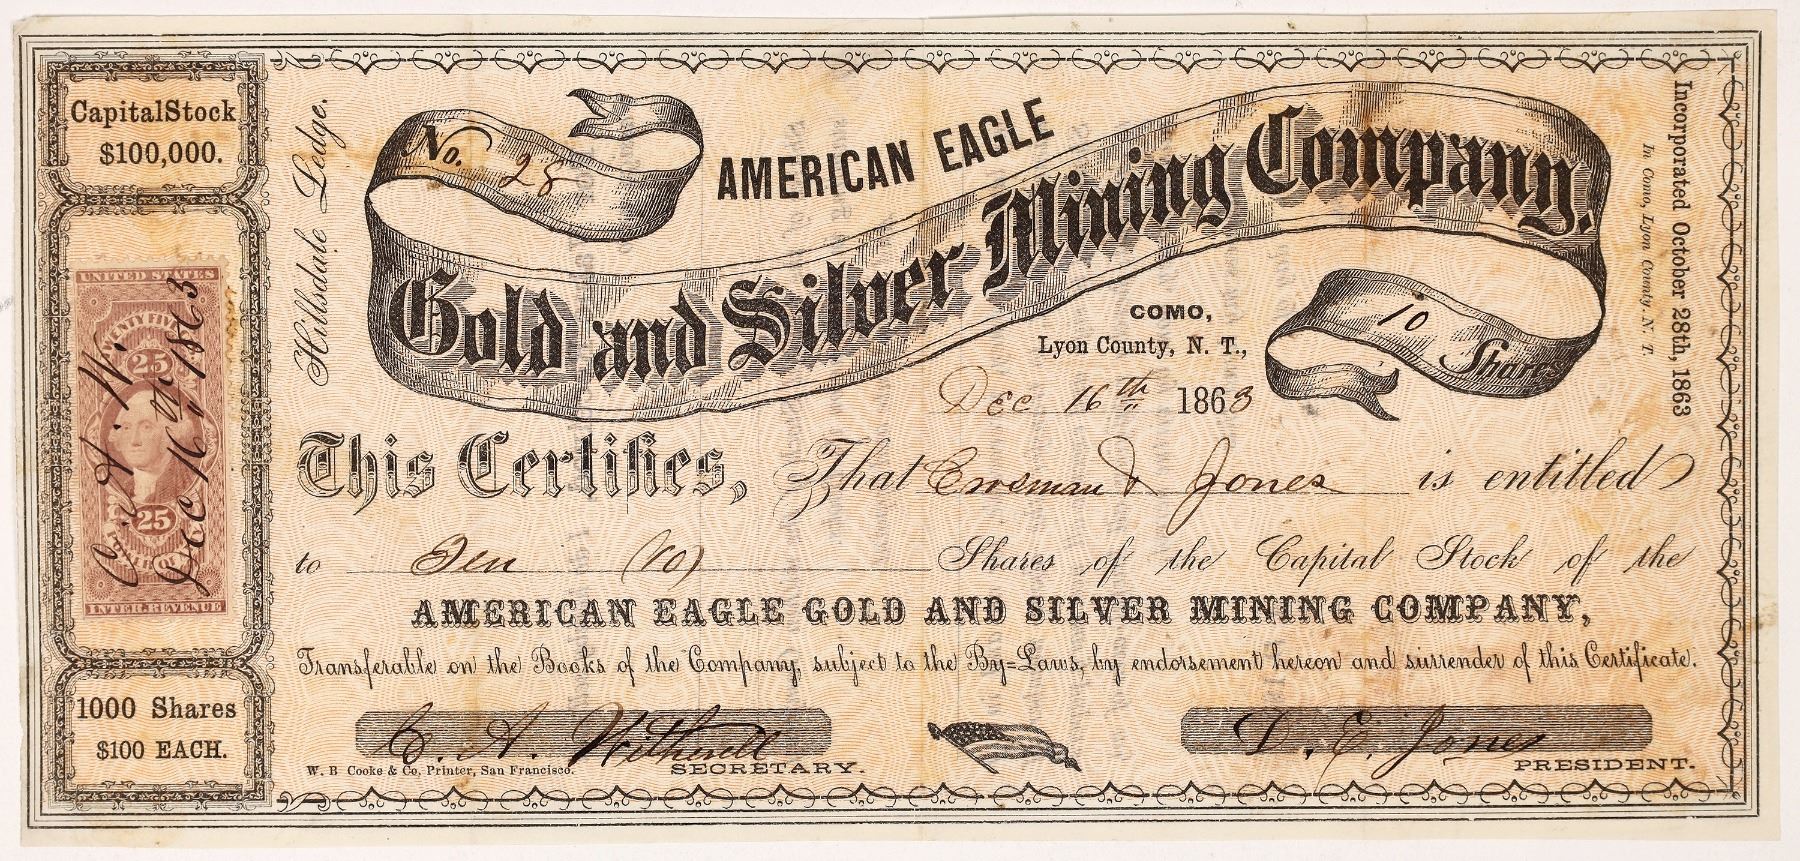 CapitalStock
$100,000.
UNITED STATES
TWENTY FIVE
25
25
INTER. REVENUE
C. A. W.
Dec 16th 1863
1000 Shares
$100 EACH.
Hillsdale Ledge.
No. 28
AMERICAN EAGLE
Gold and Silver Mining Company.
COMO,
Lyon County, N. T.,
10 Shares
Dec 16th 1863
Incorporated October 28th, 1863
In Como, Lyon County, N. T.
This Certifies, That & Jones is entitled
to Ten (10) Shares of the Capital Stock of the
AMERICAN EAGLE GOLD AND SILVER MINING COMPANY,
Transferable on the Books of the Company, subject to the By=Laws, by endorsement hereon and surrender of this Certificate.
C. A. Witherell
D. E. Jones
W. B Cooke & Co, Printer, San Francisco.
SECRETARY.
PRESIDENT.